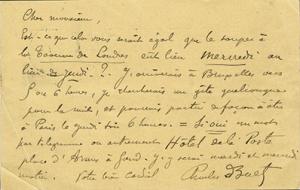 Cher monsieur,
Est-ce que cela vous serait égal que le souper à
la Taverne de Londres eût lieu Mercredi au
lieu de jeudi. - J'arriverais à Bruxelles vers
5 ou 6 heures, je chercherais un gîte quelconque
pour la nuit, et pourrais partir de façon à être
à Paris le jeudi 6 heures. = Si oui un mot
par télégramme ou autrement Hôtel de la Poste
place d'Armes à Gand. J'y serai mardi et mercredi
matin. Votre bien cordial Charles Buet